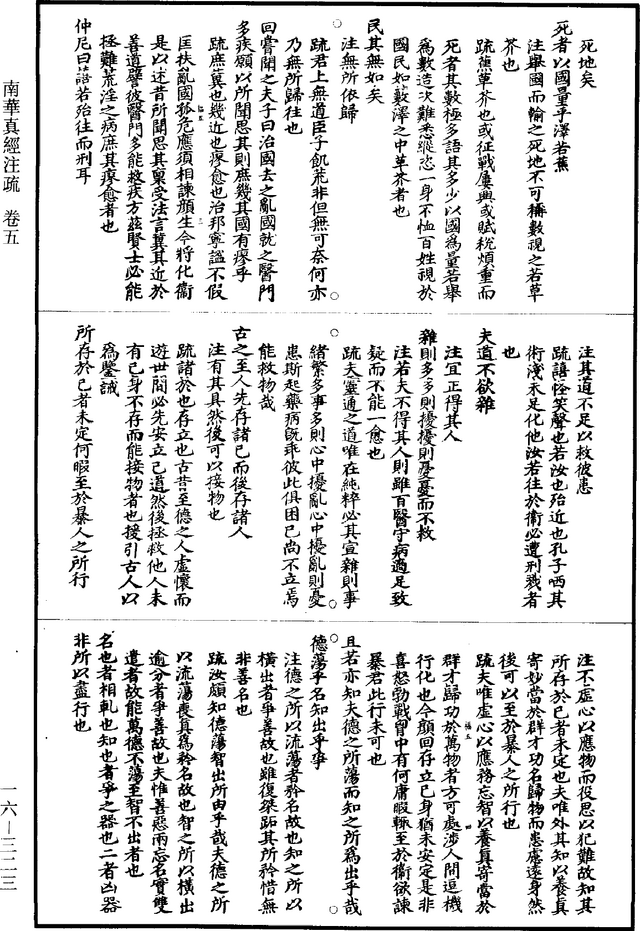 南華真經注疏　卷五
一六—三二三
死地矣
死者以國量乎澤若蕉
注舉國而輸之死地不可稱數視之若草
芥也
疏蕉草芥也或征戰屢興或賦稅煩重而
死者其數極多語其多少以國為量若舉
為數造次難悉縱恣一身不恤百姓視於
國民如藪澤之中草芥者也
民其無如矣
注無所依歸
疏君上無道臣子飢荒非但無可奈何亦
乃無所歸往也
回嘗聞之夫子曰治國去之亂國就之醫門
多疾願以所聞思其則庶幾其國有瘳乎
疏庶冀也幾近也瘳愈也治邦寧謐不假
匡扶亂國孤危應須相諫顏生今將化衛
是以述昔所聞思其稟受法言冀其近於
善道譬彼醫門多能救疾方茲賢士必能
拯難荒淫之病庶其瘳愈者也
仲尼曰譆若殆往而刑耳
注其道不足以救彼患
疏譆怪笑聲也若汝也殆近也孔子哂其
術淺未足化他汝若往於衛必遭刑戮者
也
夫道不欲雜
注宜正得其人
雜則多多則擾擾則憂憂而不救
注若夫不得其人則雖百醫守病適足致
疑而不能一愈也
疏夫靈通之道唯在純粹必其宣雜則事
緒繁多事多則心中擾亂心中擾亂則憂
患斯起藥病既乖彼此俱困己尚不立焉
能救物哉
古之至人先存諸己而後存諸人
注有其具然後可以接物也
疏諸於也存立也古昔至德之人虛懷而
遊世間必先安立己道然後拯救他人未
有己身不存而能接物者也援引古人以
為鑒誡
所存於己者未定何暇至於暴人之所行
注不虛心以應物而役思以犯難故知其
所存於己者未定也夫唯外其知以養真
寄妙當於群才功名歸物而患慮遠身然
後可以至於暴人之所行也
疏夫唯虛心以應務忘智以養真寄當於
群才歸功於萬物者方可處涉人間逗機
行化也今顏回存立己身猶未安定是非
喜怒勃戰胷中有何庸暇輒至於衛欲諫
暴君此行未可也
且若亦知夫德之所蕩而知之所為出乎哉
德蕩乎名知出乎爭
注德之所以流蕩者矜名故也知之所以
橫出者爭善故也雖復桀跖其所矜惜無
非善名也
疏汝頗知德蕩智出所由乎哉夫德之所
以流蕩喪真為矜名故也智之所以橫出
逾分者爭善故也夫惟善惡兩忘名實雙
遣者故能萬德不蕩至智不出者也
名也者相軋也知也者爭之器也二者凶器
非所以盡行也